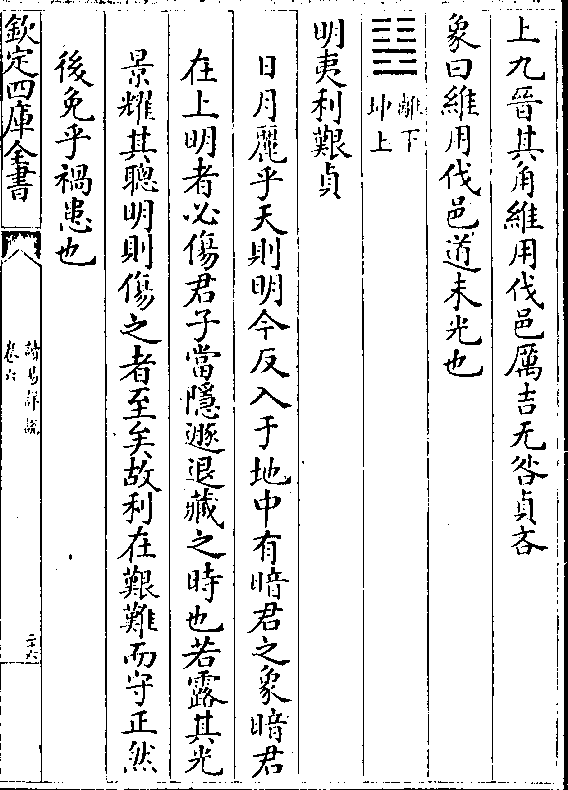 上九晉其角維用伐邑厲吉无咎貞吝
象曰維用伐邑道未光也
䷣離下
坤上
明夷利艱貞
日月麗乎天則明今反入于地中有暗君之象暗君
在上明者必傷君子當隱遯退藏之時也若露其光
景耀其聰明則傷之者至矣故利在艱難而守正然
後免乎禍患也
欽定四庫全書
讀易詳説
卷六
二十六